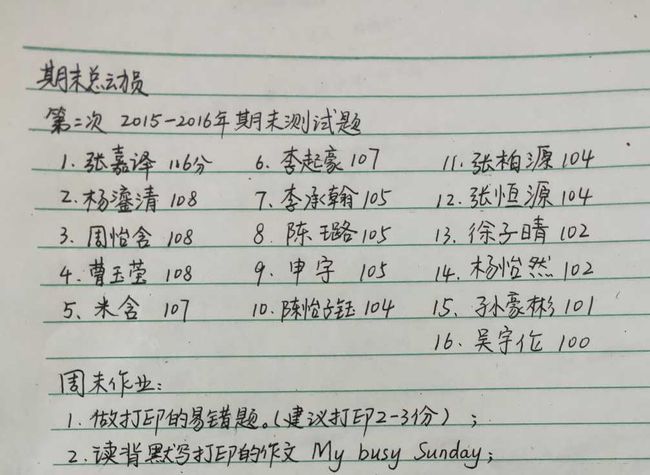 期末总动员
第二次 2015-2016年期末测试题
1. 张嘉译 116分 6. 李起豪 107 11. 张柏源 104
2. 杨鎏清 108 7. 李承翰 105 12. 张恒源 104
3. 周怡含 108 8. 陈玉路 105 13. 徐子晴 102
4. 曹玉莹 108 9. 申宇 105 14. 杨怡然 102
5. 米含 107 10. 陈怡钰 104 15. 孙豪彬 101
16. 吴宇伦 100
周末作业:
1. 做打印的易错题。(建议打印2-3份);
2. 读背默写打印的作文 My busy Sunday;